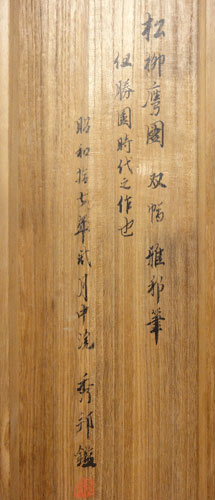 松柳鷹図 双幅 雅邦筆
但勝園時代之作也
昭和拾七年弐月中浣 秀邦鑑